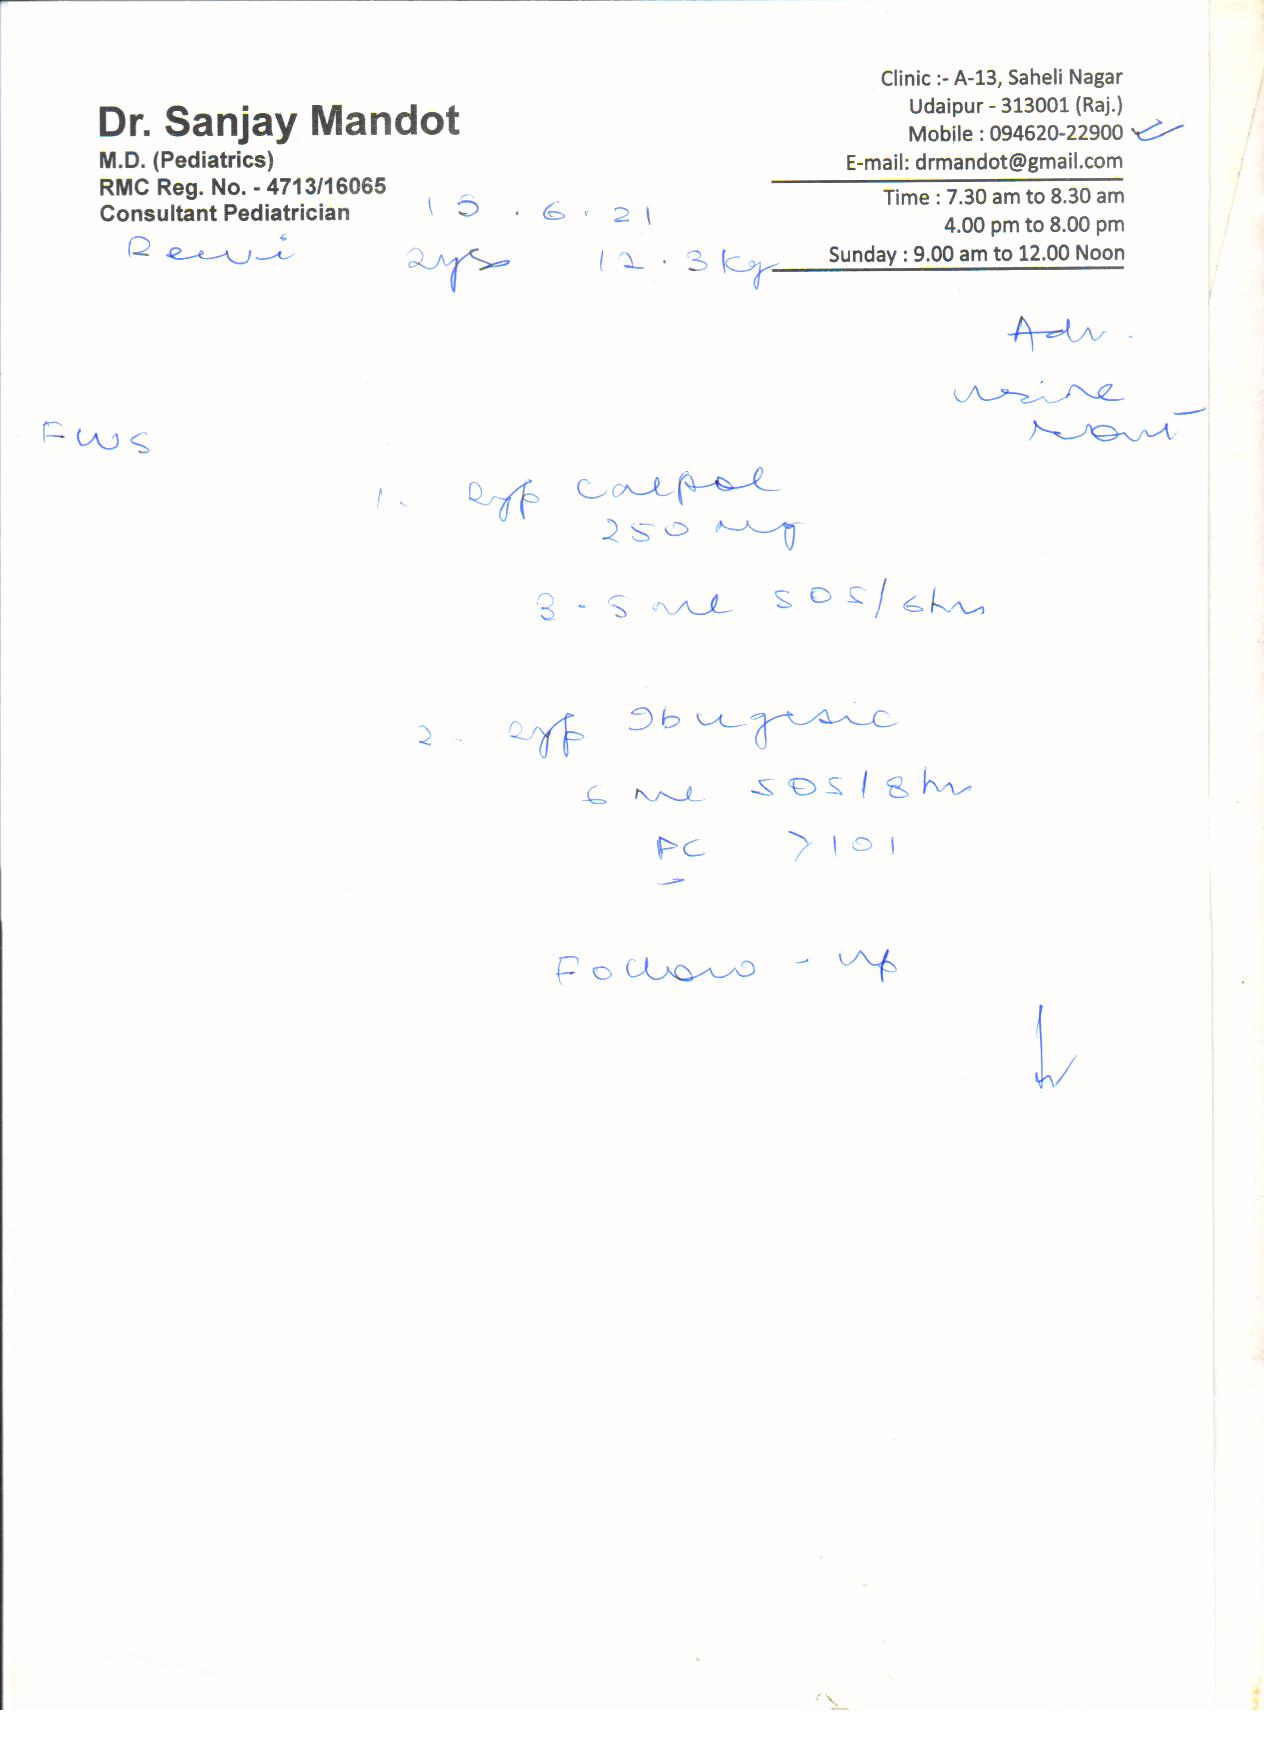 Dr. Sanjay Mandot
M.D. (Pediatrics)
RMC Reg. No. - 4713/16065
Consultant Pediatrician
Clinic :- A-13, Saheli Nagar
Udaipur - 313001 (Raj.)
Mobile : 094620-22900
E-mail: drmandot@gmail.com
Time : 7.30 am to 8.30 am
4.00 pm to 8.00 pm
Sunday : 9.00 am to 12.00 Noon
.6.21
2yrs 12.3kg
Adv.
urine
FWS
1. syp calpol
250 mg
3.5 ml SOS/6hrs
2. syp Ibugesic
6 ml SOS/8hr
PC >101
Follow-up